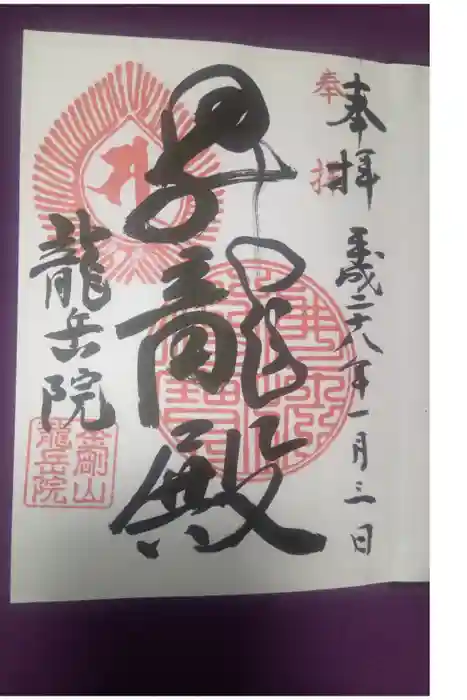 奉拝
奉拝
平成二十八年一月三日
昇龍殿
龍岳院
金剛山
龍岳院